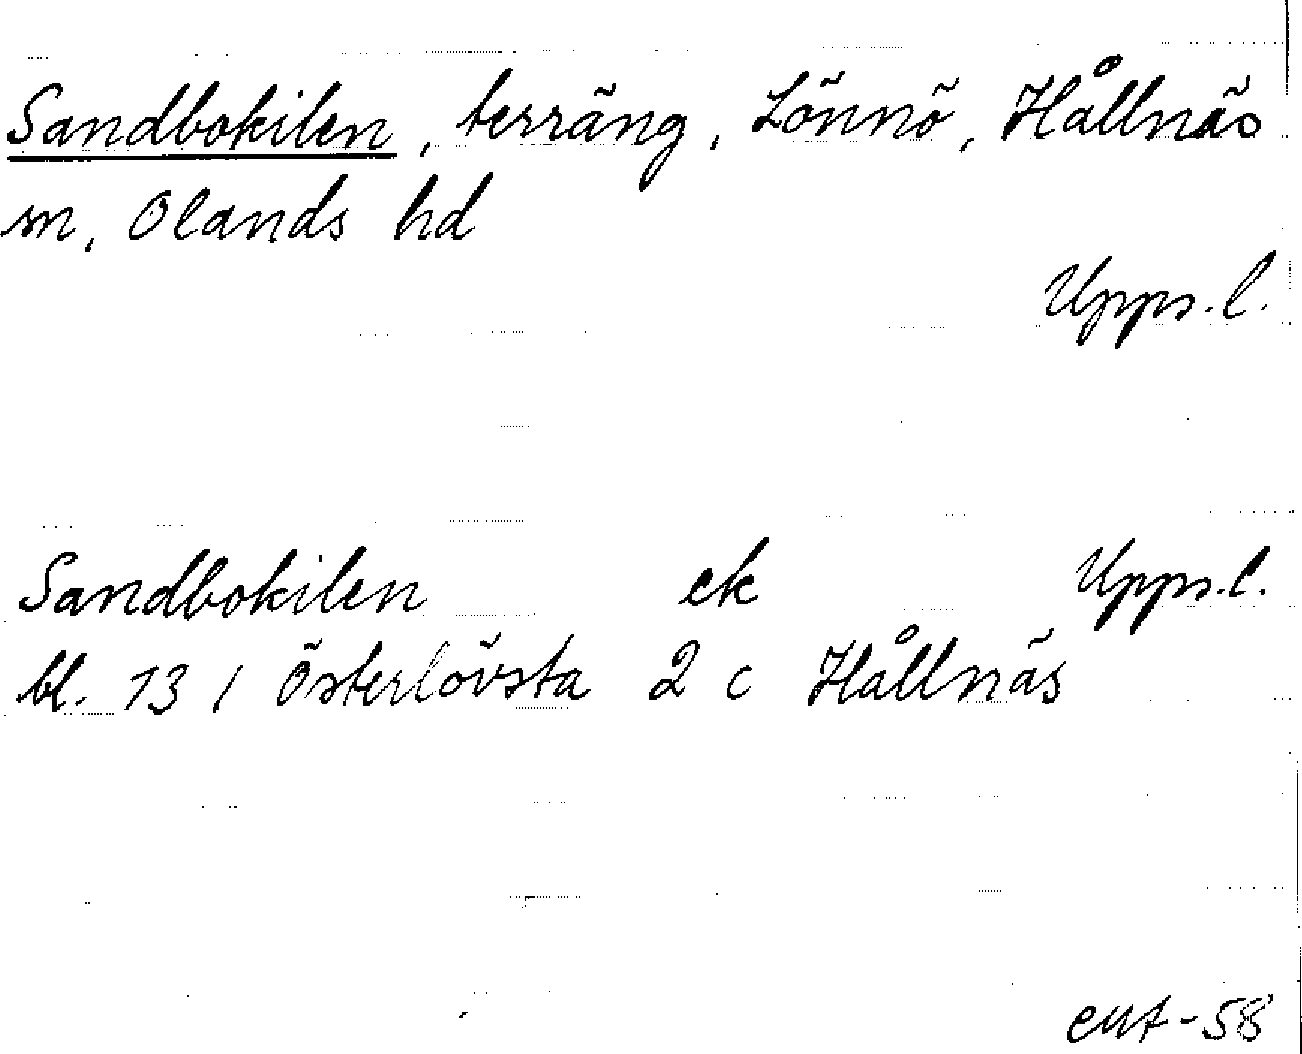 Sandbokilen, terräng, Lönnö, Hållnäs
sn, Olands hd
Upps. l.
Sandbokilen ek Upps. l.
bl. 13 I Österlövsta 2 c Hållnäs